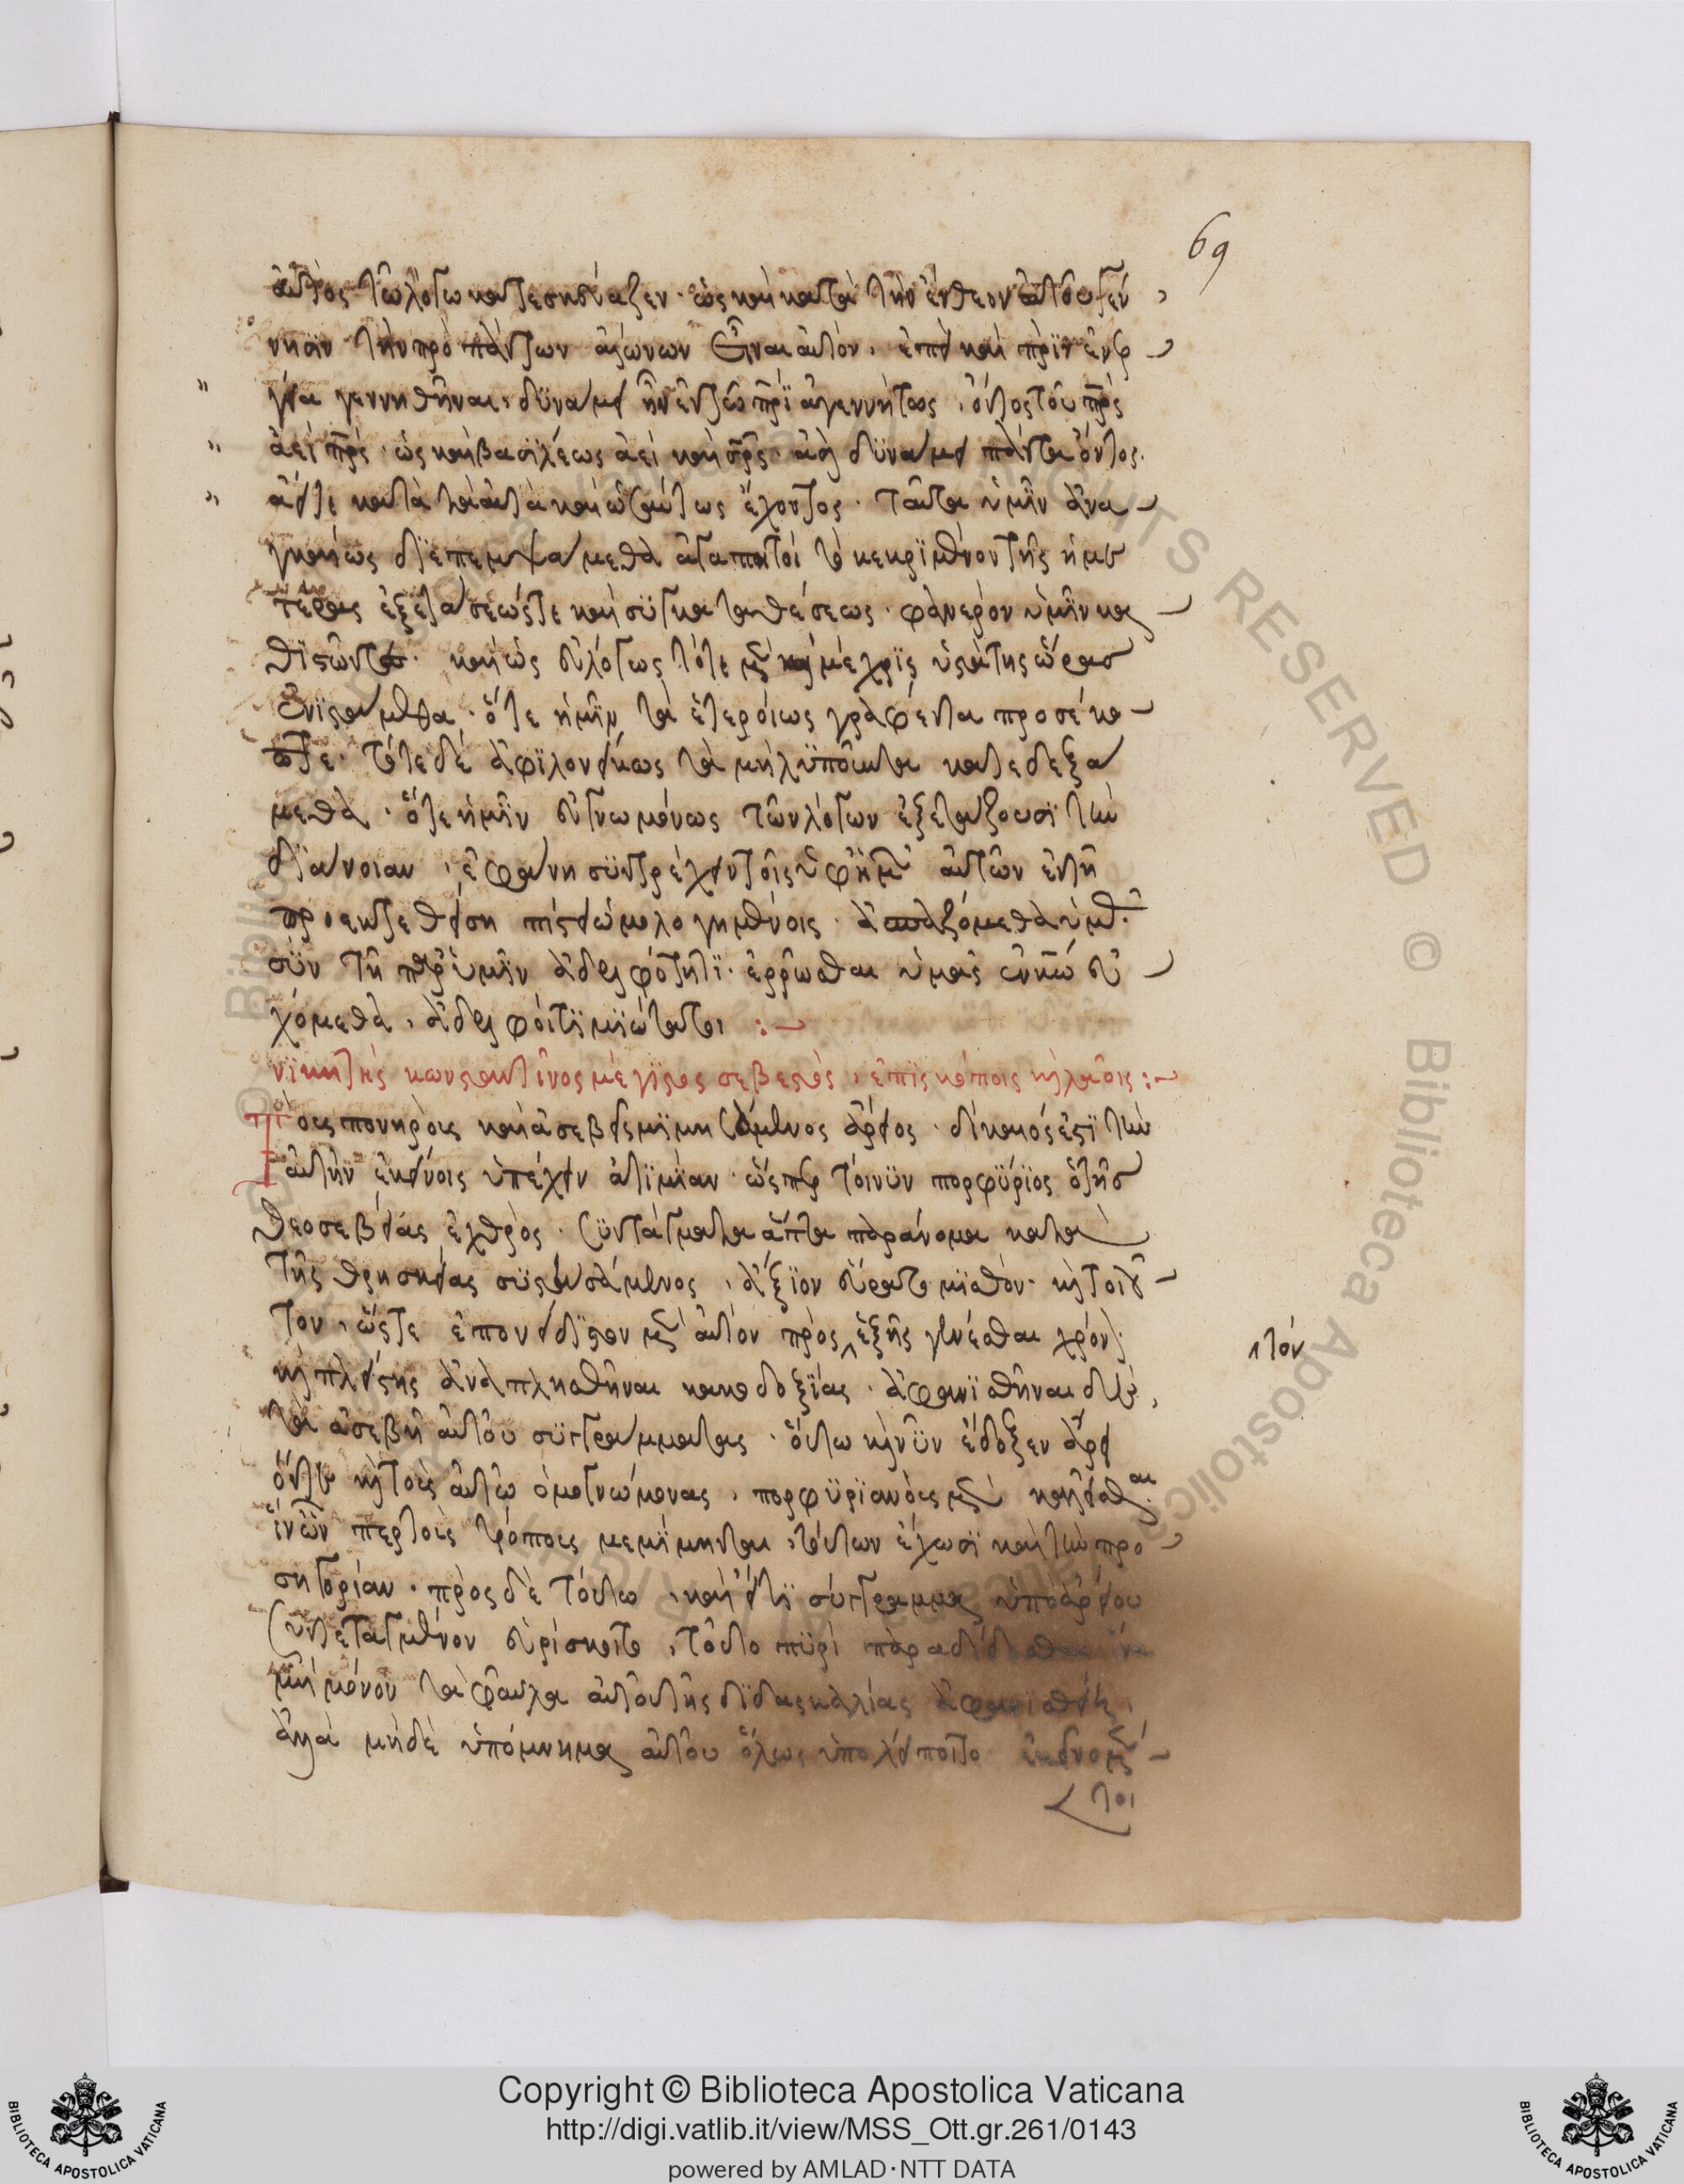 69
αὐτὸς τῷ λόγῳ κατεσκεύαζεν· ὡς καὶ κατὰ τὴν ἔνθεον αὐτοῦ γέν
νησιν τὴν πρὸ πάντων αἰώνων εἶναι αὐτόν. ἐπεὶ καὶ πρὶν ἐνερ
γείᾳ γεννηθῆναι, δυνάμει ἦν ἐν τῷ πρι ἀγεννήτως, ὄντος τοῦ πρς
ἀεὶ πρς· ὡς καὶ βασιλέως ἀεὶ καὶ σρς· ἀεὶ δυνάμει πάντα ὄντος·
ἀεί τε κατὰ τὰ αὐτὰ καὶ ὡσαύτως ἔχοντος· ταῦτα ὑμῖν ἀνα
γκαίως διεπεμψάμεθα ἀγαπητοί τὸ κεκριμένον τῆς ἡμε
τέρας ἐξετάσεώς τε καὶ συγκαταθέσεως· φανερὸν ὑμῖν κα
θιστῶντες· καὶ ὡς εὐλόγως τότε μὲν καὶ μέχρις ὑστάτης ὥρας
ἐνιστάμεθα· ὅτε ἡμῖν τὰ ἑτεροίως γραφέντα προσέκο
πτε· τότε δὲ ἀφιλονείκως τὰ μὴ λυποῦντα κατεδεξά
μεθα· ὅτε ἡμῖν εὐγνωμόνως τῶν λόγων ἐξετάζουσι τὴν
διάνοιαν, ἐφάνη συντρέχειν τοῖς ὑφ' ἡμῶν αὐτῶν ἐν τῇ
προεκτεθείσῃ πίστει ὡμολογημένοις· ἀσπαζόμεθα ὑμᾶς
σὺν τῇ παρ' ὑμῖν ἀδελφότητι· ἐρρῶσθαι ὑμᾶς ἐν κω εὐ
χόμεθα, ἀδελφοὶ τιμιώτατοι :~
νικητὴς κωνσταντῖνος μέγιστος σεβαστὸς, ἐπισκόποις κ λαοῖς :~
Τοὺς πονηροὺς καὶ ἀσεβεῖς μιμησάμενος ἄρειος· δίκαιός ἐστι τὴν
αὐτὴν ἐκείνοις ὑπέχειν ἀτιμίαν· ὥσπερ τοίνυν πορφύριος ὁ τῆς
θεοσεβείας ἐχθρὸς· συντάγματα ἄττα παράνομα κατὰ
τῆς θρησκείας συστησάμενος, ἄξιον εὕρατο μισθόν· κ τοιοῦ
τον, ὥστε ἐπονείδιστον μὲν αὐτὸν πρὸς ἑξῆς γενέσθαι χρόνον·
τόν
κ πλείστης ἀναπλησθῆναι κακοδοξίας· ἀφανισθῆναι δὲ
τὰ ἀσεβῆ αὐτοῦ συγγράμματα· οὕτω κ νῦν ἔδοξεν ἄρει
όν τε κ τοὺς αὐτῷ ὁμογνώμονας, πορφυριανοὺς μὲν καλεῖσθαι
ἵν' ὧν περ τοὺς τρόπους μεμίμηνται, τούτων ἔχωσι καὶ τὴν προ
σηγορίαν· πρὸς δὲ τούτω, καὶ εἴ τι σύγγραμμα ὑπὸ ἀρείου
συντεταγμένον εὑρίσκοιτο, τοῦτο πυρὶ παραδίδοσθαι ἵνα
μὴ μόνον τὰ φαῦλα αὐτοῦ τῆς διδασκαλίας ἀφανισθείη,
ἀλλὰ μηδὲ ὑπόμνημα αὐτοῦ ὅλως ὑπολείποιτο
τοι
Copyright © Biblioteca Apostolica Vaticana
http://digi.vatlib.it/view/MSS_Ott.gr.261/0143
powered by AMLAD·NTT DATA
BIBLIOTECA APOSTOLICA VATICANA
BIBLIOTECA APOSTOLICA VATICANA